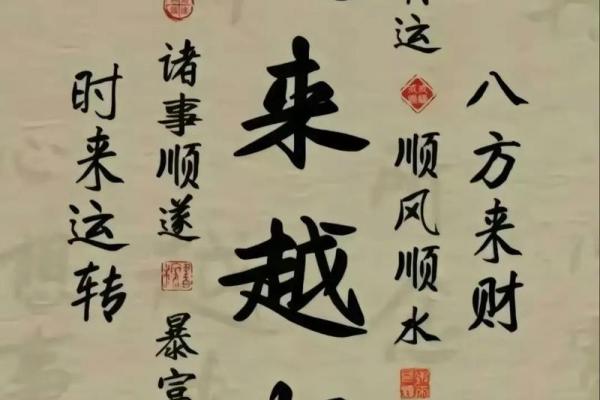 八方来财
运
顺风顺水
来越
诸事顺遂
暴富
时来运转